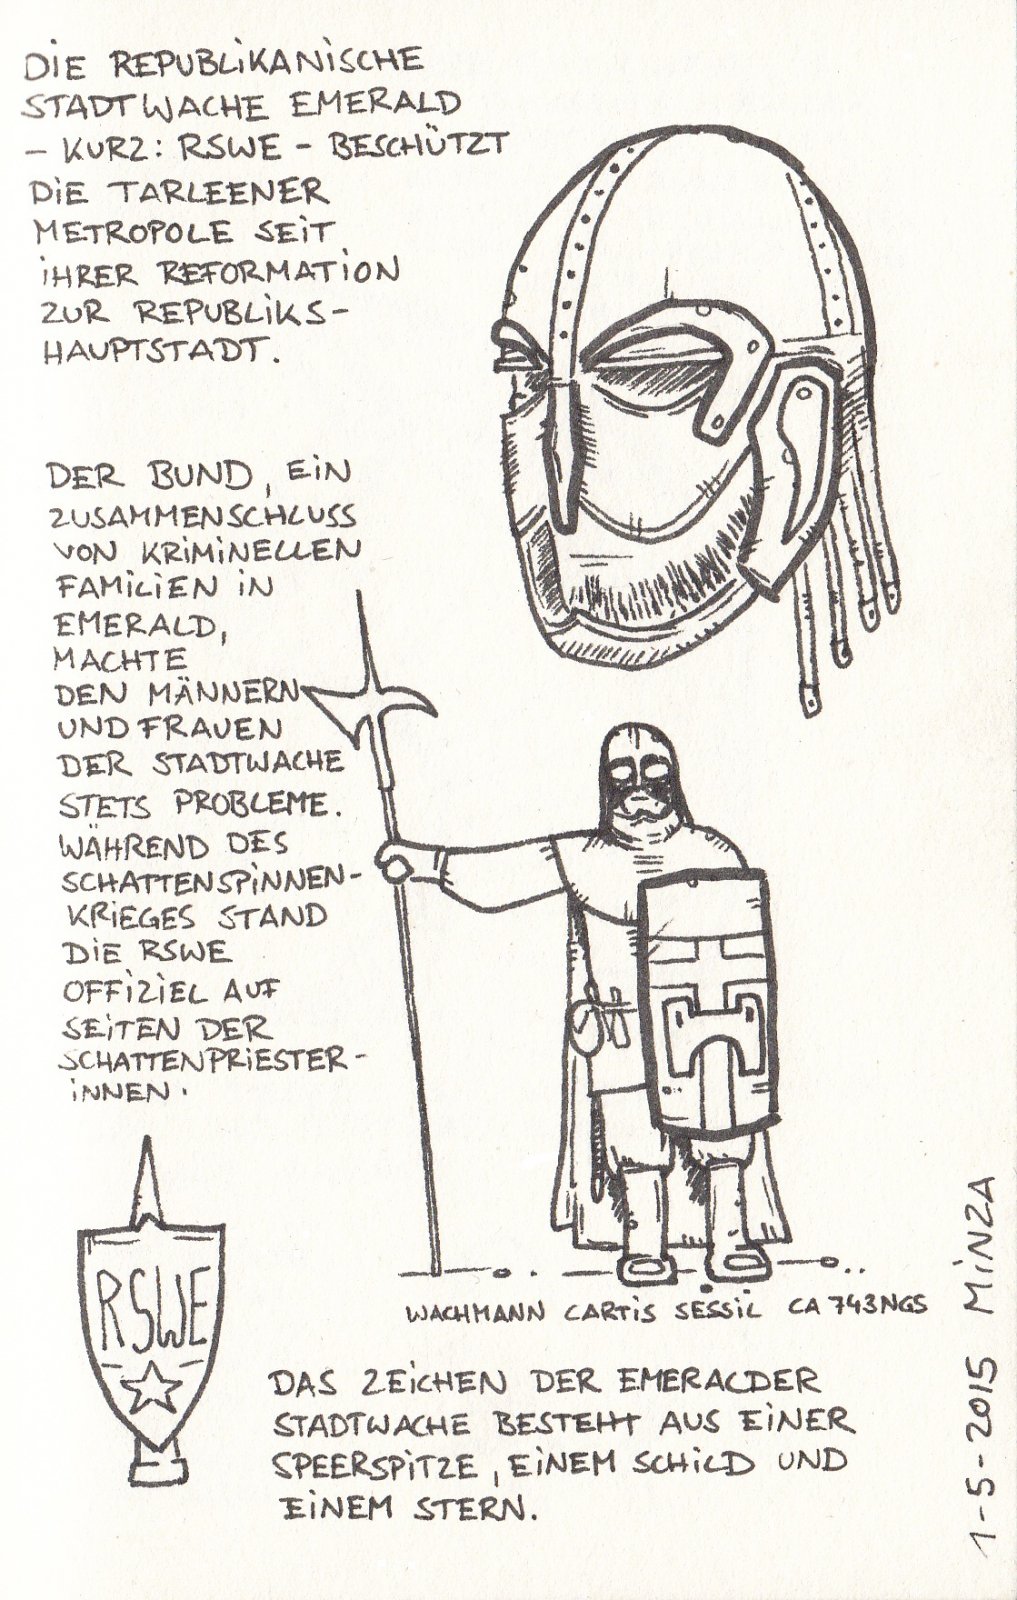 DIE REPUBLIKANISCHE
STADTWACHE EMERALD
– KURZ: RSWE – BESCHÜTZT
DIE TARLEENER
METROPOLE SEIT
IHRER REFORMATION
ZUR REPUBLIKS-
HAUPTSTADT.
DER BUND, EIN
ZUSAMMENSCHLUSS
VON KRIMINELLEN
FAMILIEN IN
EMERALD,
MACHTE
DEN MÄNNERN
UND FRAUEN
DER STADTWACHE
STETS PROBLEME.
WÄHREND DES
SCHATTENSPINNEN-
KRIEGES STAND
DIE RSWE
OFFIZIEL AUF
SEITEN DER
SCHATTENPRIESTER-
INNEN.
RSWE
WACHMANN CARTIS SESSIL CA 743NGS
DAS ZEICHEN DER EMERALDER
STADTWACHE BESTEHT AUS EINER
SPEERSPITZE, EINEM SCHILD UND
EINEM STERN.
1-5-2015 MINZA